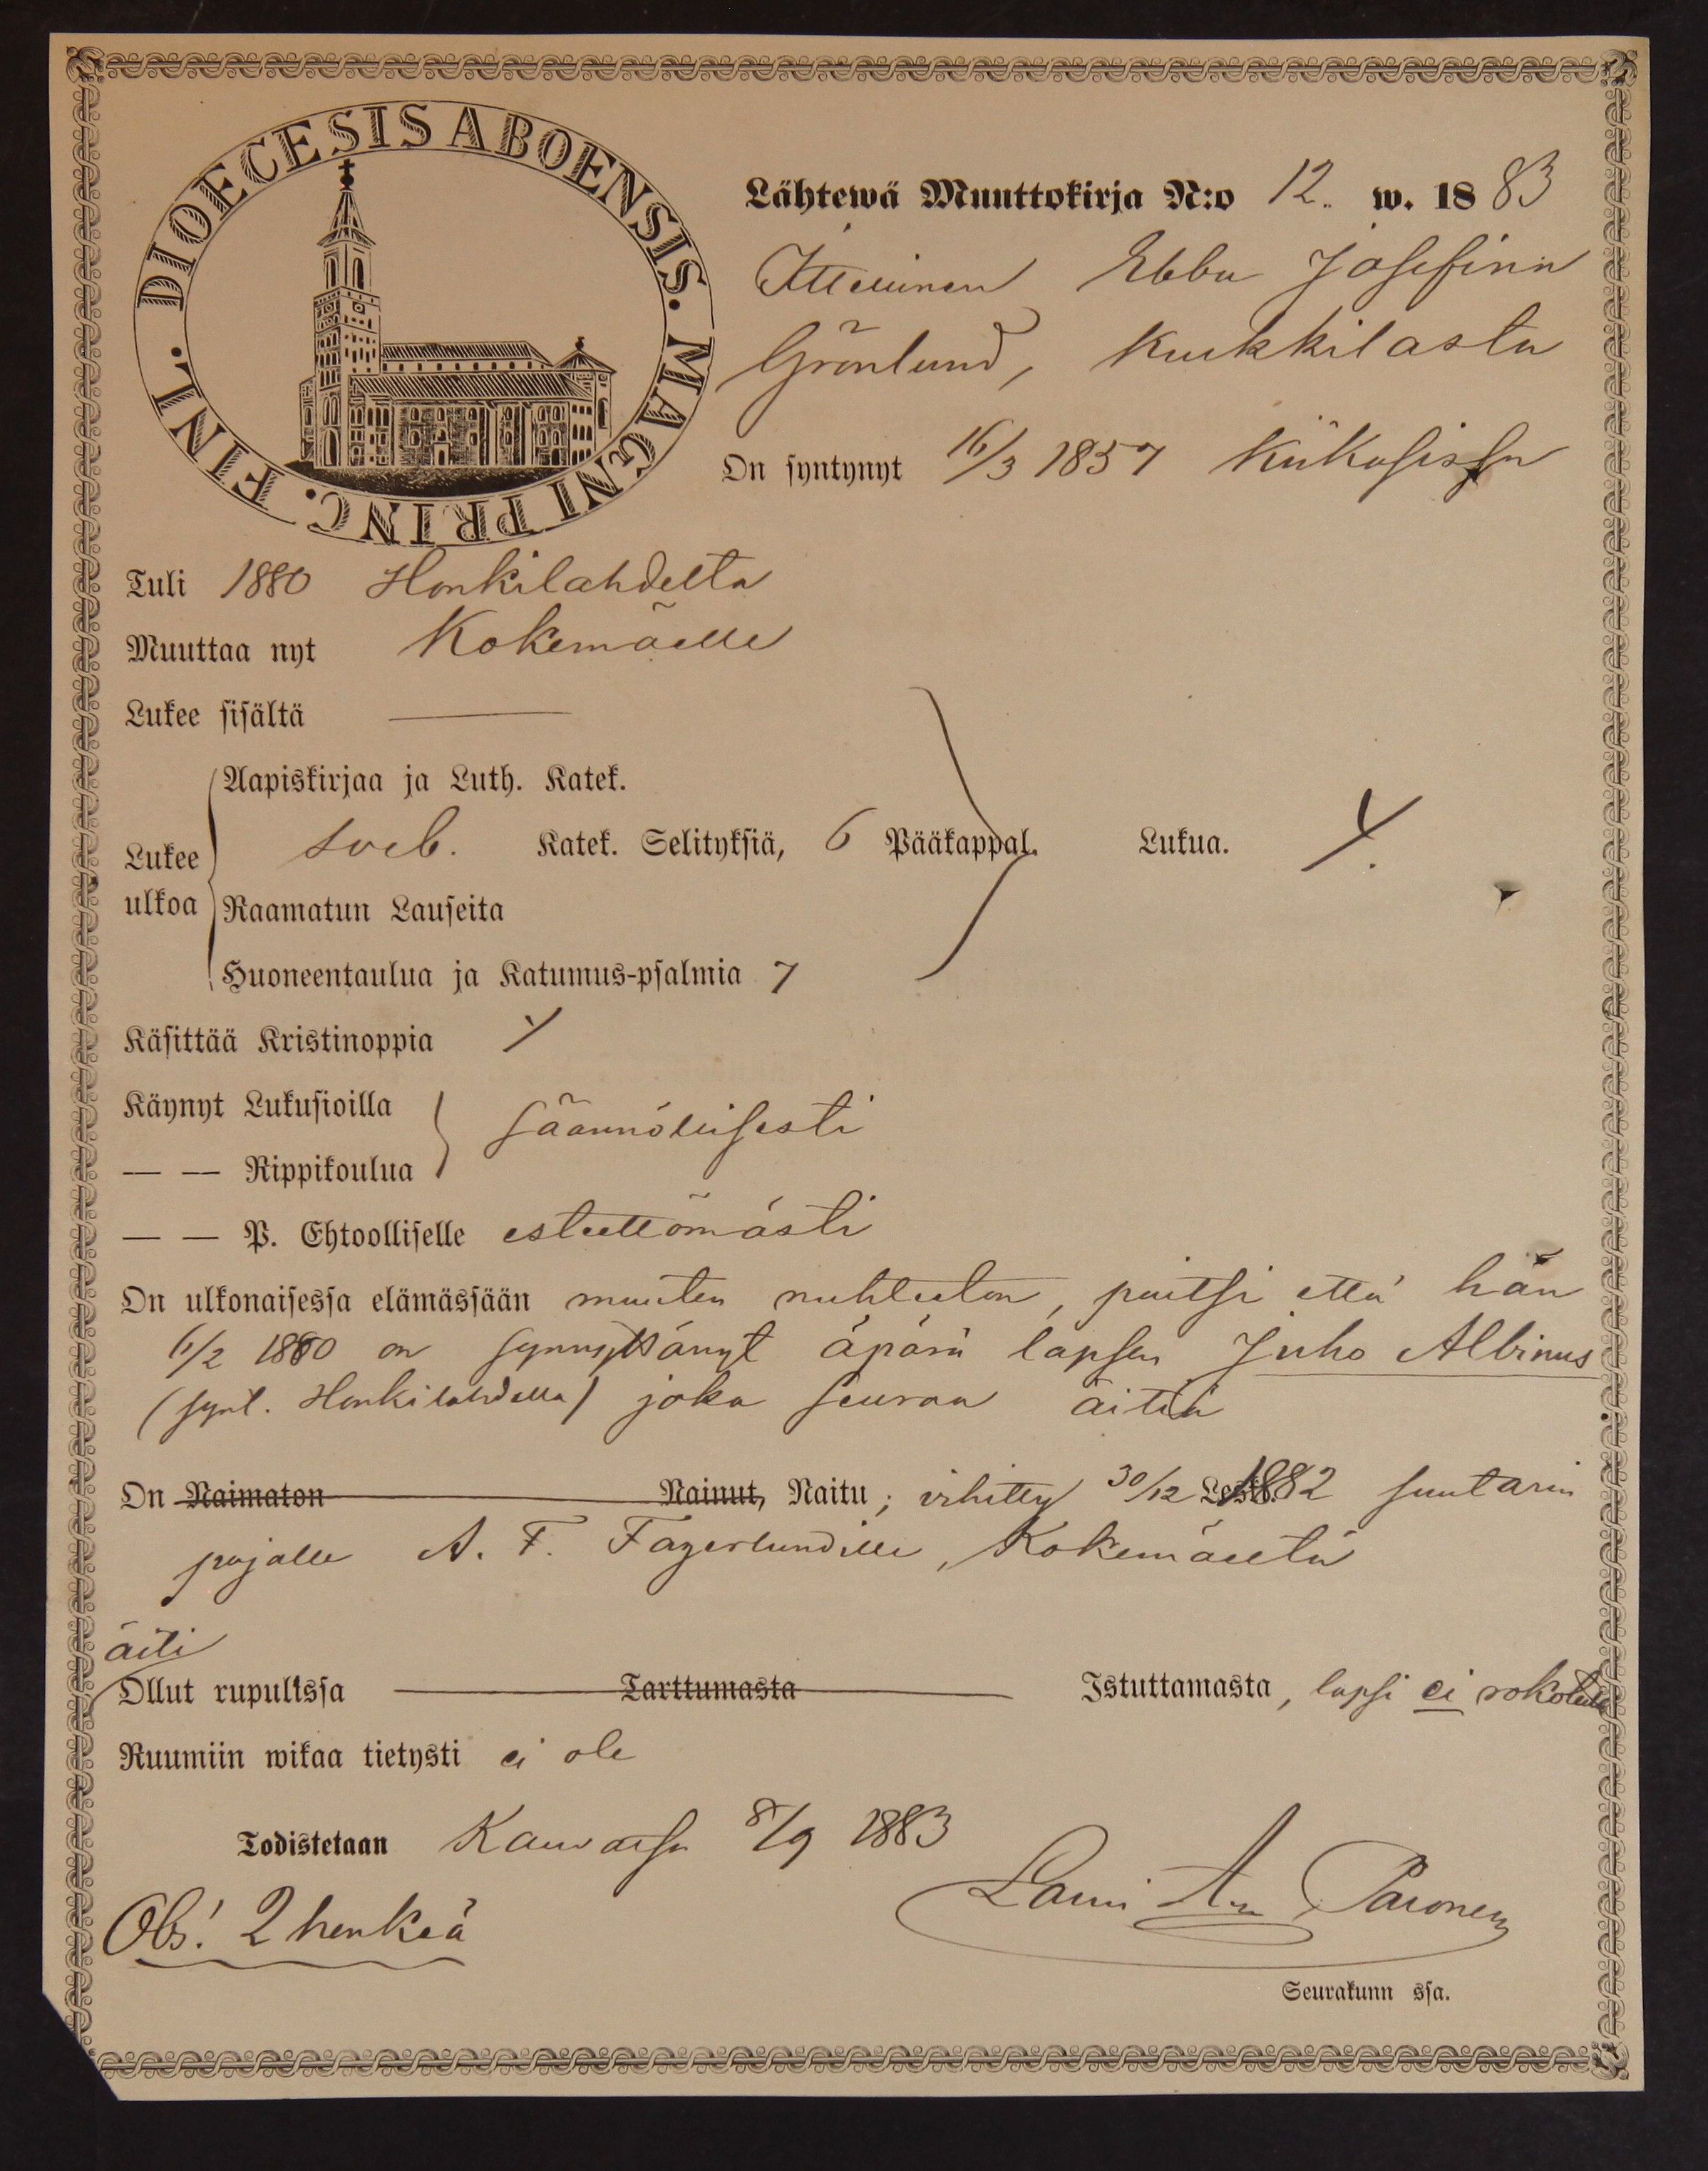 DIOECESIS ABOENSIS. MAGNI PRINC. FINL.
Lähtewä Muuttokirja N:o 12. w. 1883
Itsellinen Ebba Josefina
Grönlund, Kurkkilasta
On syntynyt 16/3 1857 Kiikasissa
Tuli 1880 Honkilahdelta
Muuttaa nyt Kokemäelle
Lukee sisältä
Aapiskirjaa ja Luth. Katek.
Lukee ulkoa
Sveb. Katek. Selityksiä, 6 Pääkappal. Lukua.
Raamatun Lauseita
Huoneentaulua ja Katumus-psalmia 7
Käsittää Kristinoppia
Käynyt Lukusioilla
säännöllisesti
— — Rippikoulua
— — P. Ehtoolliselle esteettömästi
On ulkonaisessa elämässään muuten nuhteeton, paitsi että hän
6/2 1880 on synnyttänyt äpärä lapsen Juho Albinus
(synt. Honkilahdella) joka seuraa äitiä
On Naimaton Nainut, Naitu; vihitty 30/12 Leski. 1882 suutarin
pojalle A. F. Fagerlundille, Kokemäeltä
äiti
Ollut rupulissa Tarttumasta Istuttamasta, lapsi ei rokotettu
Ruumiin wikaa tietysti ei ole
Todistetaan Kauvatsa 8/9 1883
Obs! 2 henkeä
Paronen
Seurakunn ssa.